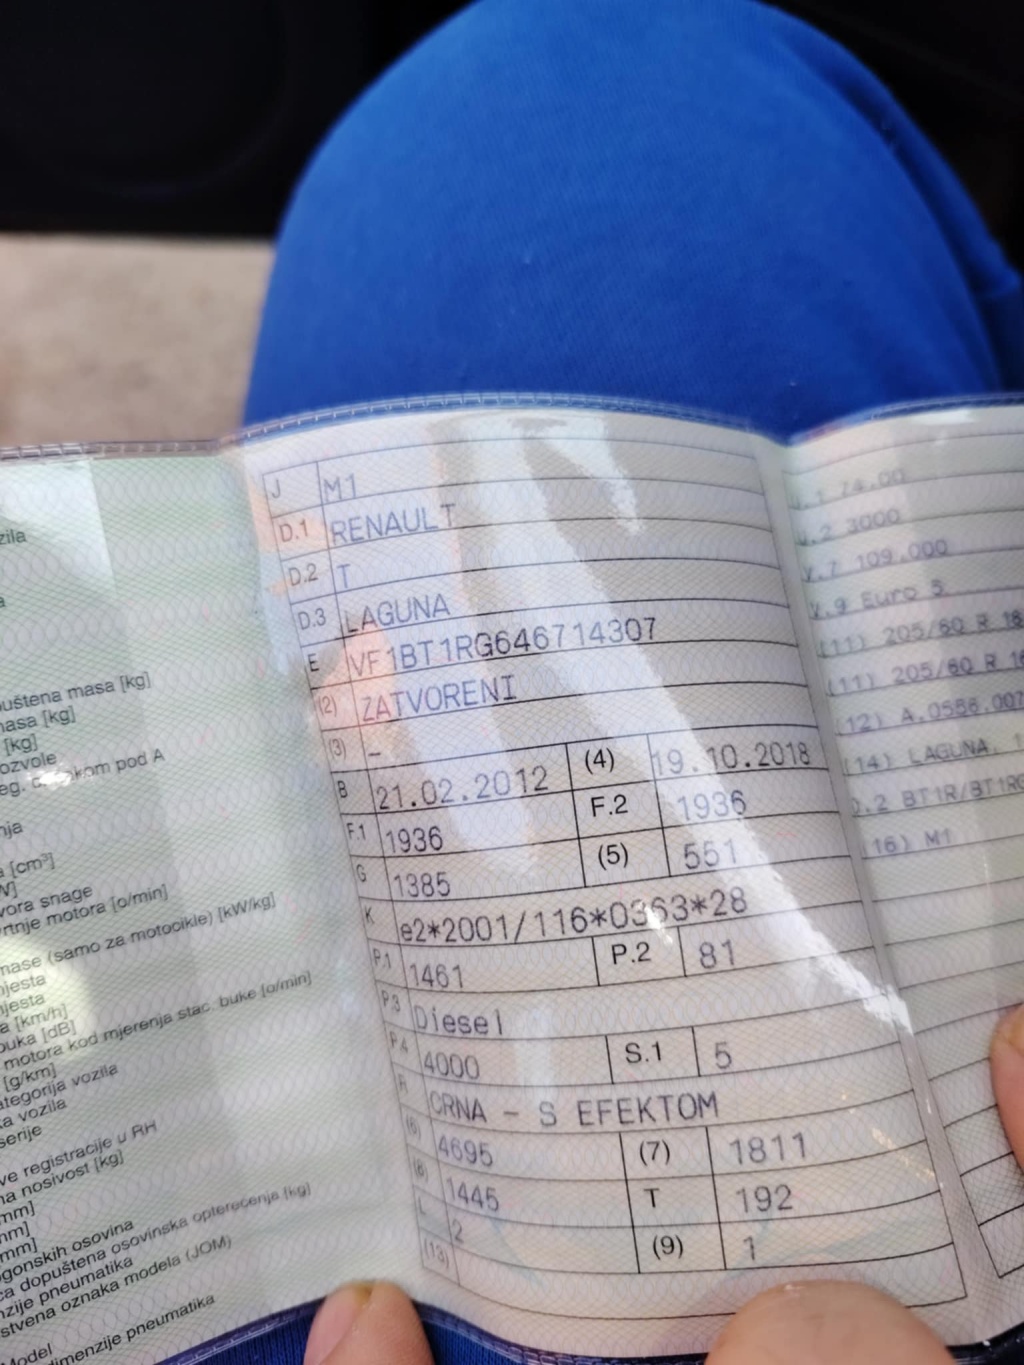 zila
a
puštena masa [kg]
masa [kg]
[kg]
ozvole
kom pod A
nja
[cm³]
W]
vora snage
rtnje motora [o/min]
mase (samo za motocikle) [kW/kg]
mjesta
mjesta
a [km/h]
buka [dB]
motora kod mjerenja stac. buke [o/min]
[g/km]
ategorija vozila
ka vozila
serije
ve registracije u RH
na nosivost [kg]
mm]
mm]
mm]
gonskih osovina
ca dopuštena osovinska opterećenja [kg]
nzije pneumatika
stvena oznaka modela (JOM)
Model
dimenzije pneumatika
J M1
D.1 RENAULT
D.2 T
D.3 LAGUNA
E VF1BT1RG646714307
(2) ZATVORENI
(3) -
B 21.02.2012 (4) 19.10.2018
F.1 1936 F.2 1936
G 1385 (5) 551
K e2*2001/116*0363*28
P.1 1461 P.2 81
P.3 Diesel
P.4 4000 S.1 5
R CRNA - S EFEKTOM
(6) 4695 (7) 1811
(8) 1445 T 192
L 2 (9) 1
(13)
.1 74.00
.2 3000
V.7 109.000
V.9 Euro 5
(11) 205/60 R 16
(11) 205/60 R 16
(12) A.0556.007
(14) LAGUNA, 1
D.2 BT1R/BT1RG
(16) M1